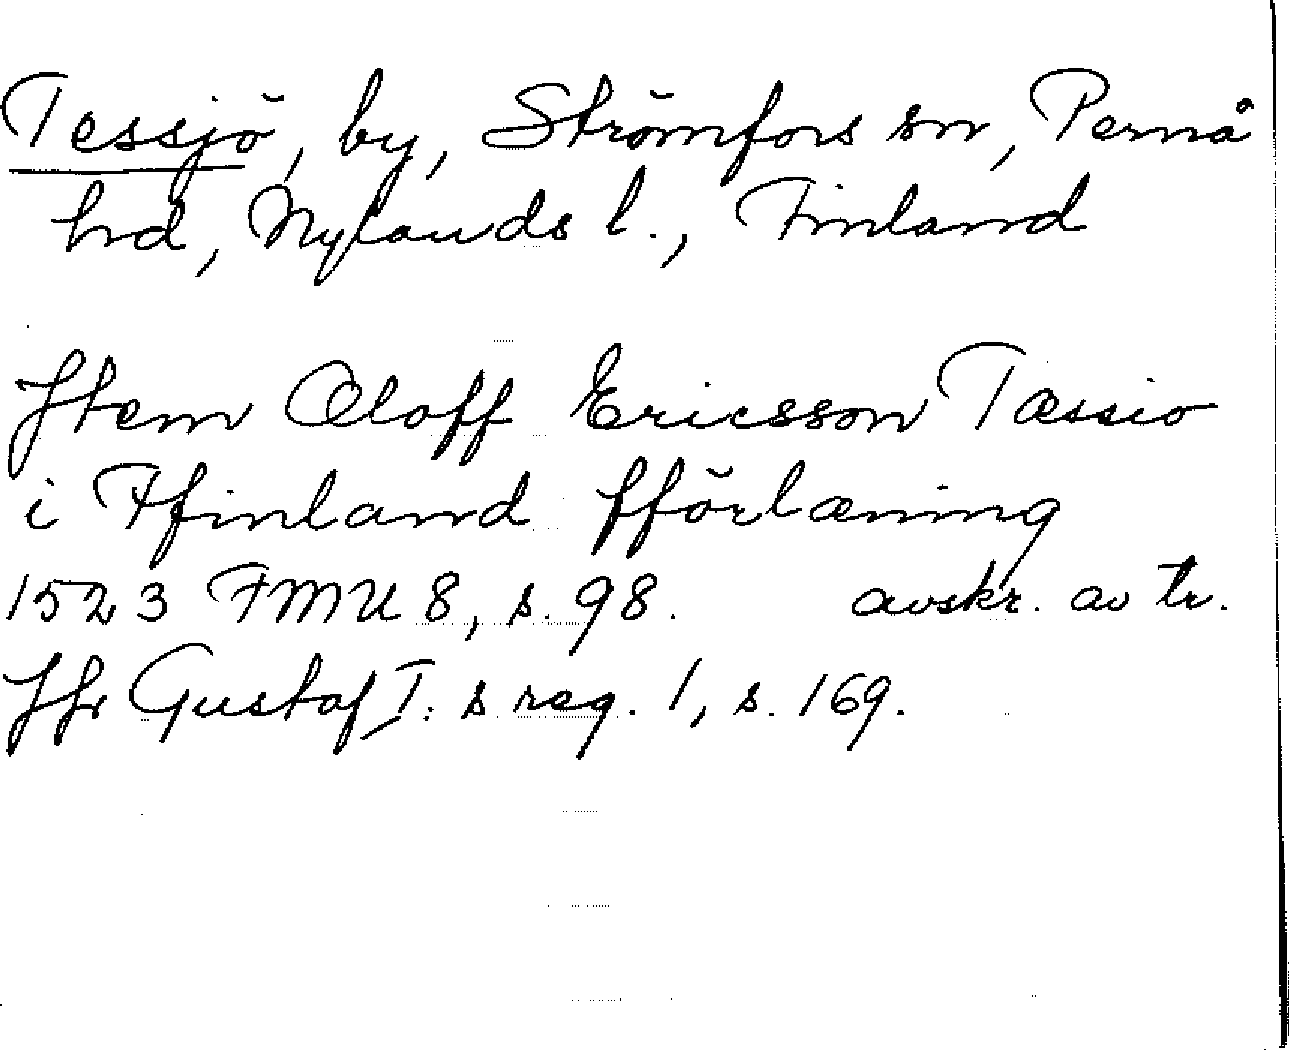 Tessjö, by, Strömfors sn, Pernå
hd, Nylands l., Finland
Jtem Oloff Ericsson Tæssio
i Ffinland fförlæning
1523 FMU 8, s. 98. avskr. av tr.
Jfr Gustaf I: s reg. 1, s. 169.